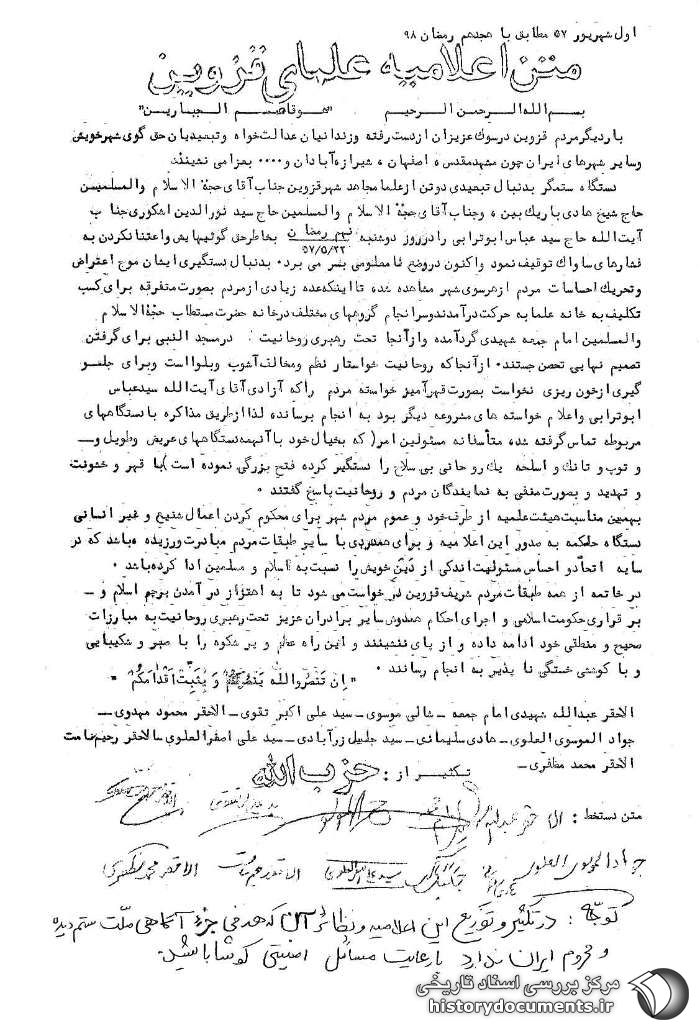 اول شهریور ۵۷ مطابق با هجدهم رمضان ۹۸
متن اعلامیه علمای قزوین
بسم الله الرحمن الرحیم "هو قاصم الجبارین"
بار دیگر مردم قزوین در سوک عزیزان از دست رفته و زندانیان عدالت خواه و تبعیدیان حق گوی شهر خویش
و سایر شهرهای ایران چون مشهد مقدس ، اصفهان ، شیراز ، آبادان و ۰۰۰۰ بعزا می نشینند
دستگاه ستمگر بدنبال تبعیدی دو تن از علما مجاهد شهر قزوین جناب آقای حجة الاسلام والمسلمین
حاج شیخ هادی باریک بین ، و جناب آقای حجة الاسلام والمسلمین حاج سید نورالدین اشکوری جناب
آیت الله حاج سید عباس ابوترابی را در روز دوشنبه نهم رمضان ۵۷/۵/۲۳ بخاطر حق گوئیهایش و اعتنا نکردن به
فشارهای ساواک توقیف نمود و اکنون در وضع نامعلومی بسر می برد۰ بدنبال دستگیری ایشان موج اعتراض
و تحریک احساسات مردم از هر سوی شهر مشاهده شد تا اینکه عده زیادی از مردم بصورت متفرقه برای کسب
تکلیف به خانه علما به حرکت درآمدند و سرانجام گروههای مختلف در خانه حضرت مستطاب حجة الاسلام
والمسلمین امام جمعه شهیدی گرد آمده و از آنجا تحت رهبری روحانیت در مسجد النبی برای گرفتن
تصمیم نهایی تحصن جستند۰ از آنجا که روحانیت خواستار نظم و مخالف آشوب و بلوا است و برای جلو
گیری از خون ریزی نخواست بصورت قهرآمیز خواسته مردم را که آزادی آقای آیت الله سید عباس
ابوترابی و اعلام خواسته های مشروعه دیگر بود به انجام برساند لذا از طریق مذاکره با دستگاههای
مربوطه تماس گرفته شد، متأسفانه مسئولین امر( که بخیال خود با آنهمه دستگاههای عریض و طویل و ـ
و توپ و تانک و اسلحه یک روحانی بی سلاح را دستگیر کرده فتح بزرگی نموده است)با قهر و خشونت
و تهدید و بصورت منفی به نمایندگان مردم و روحانیت پاسخ گفتند ۰
بهمین مناسبت هیئت علمیه از طرف خود و عموم مردم شهر برای محکوم کردن اعمال شنیع و غیر انسانی
دستگاه حاکمه به صدور این اعلامیه و برای همدردی با سایر طبقات مردم مبادرت ورزیده باشد که در
سایه اتحاد و احساس مسئولیت اندکی از دَین خویش را نسبت به اسلام و مسلمین ادا کرده باشد ۰
در خاتمه از همه طبقات مردم شریف قزوین درخواست می شود تا به اهتزاز در آمدن پرچم اسلام و ـ
بر قراری حکومت اسلامی و اجرای احکام همدوش سایر برادران عزیز تحت رهبری روحانیت به مبارزات
صحیح و منطقی خود ادامه داده و از پای ننشینند و این راه عظیم و پر شکوه را با صبر و شکیبایی
و با کوششی خستگی نا پذیر به انجام رسانند ۰
" اِن تَنصُروا اللّه یَنصُرکُم وَ یُثَبِّت اَقدامَکُم "
الاحقر عبدالله شهیدی امام جمعه ـ شالی موسوی ـ سید علی اکبر تقوی ـ الاحقر محمود مهدوی ـ
جواد الموسوی العلوی ـ هادی سلیمانی ـ سید جلیل زرآبادی ـ سید علی اصغر العلوی ـ الاحقر رحیم
الاحقر محمد مظفری ـ
تکثیر از : حزب الله
متن دستخط : الاحقر عبدالله
جواد الموسوی العلوی سید علی اصغر العلوی الاحقر محمد مظفری
توجه : در تکثیر و توزیع این اعلامیه و نظائر آن که هدفی جزء آگاهی ملّت ستم دیده
و محروم ایران ندارد با رعایت مسائل امنیتی کوشا باشید.
مرکز بررسی اسناد تاریخی
historydocuments.ir